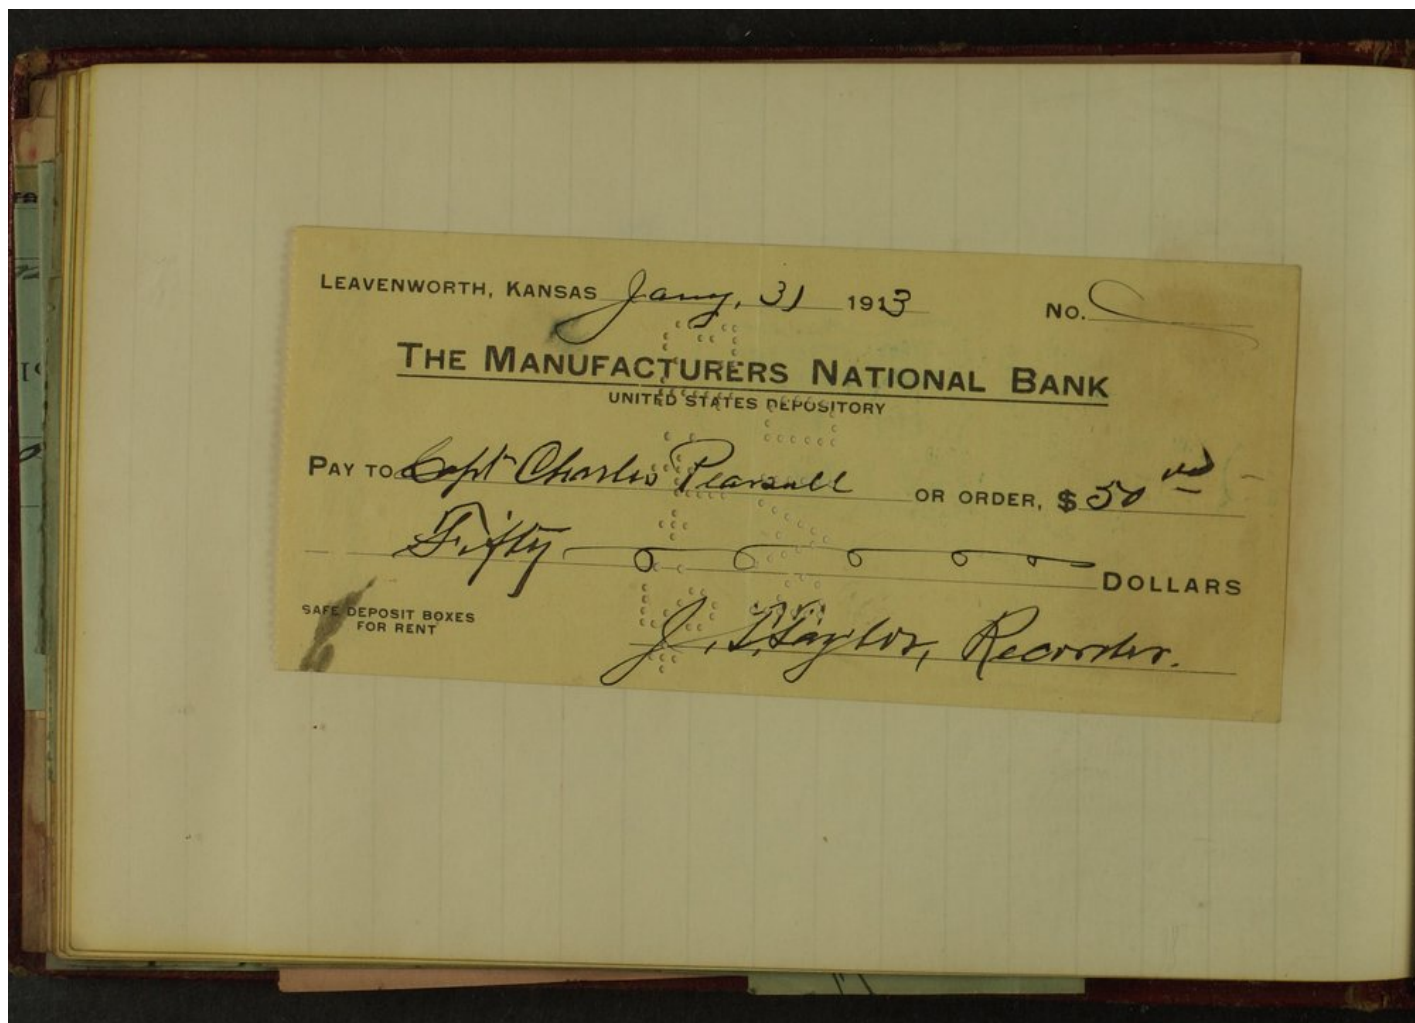 LEAVENWORTH, KANSAS Jany, 31 1913 No.
THE MANUFACTURERS NATIONAL BANK
UNITED STATES DEPOSITORY
PAY TO Capt Charles Pearsall OR ORDER, $ 50
Fifty DOLLARS
SAFE DEPOSIT BOXES
FOR RENT
J. Taylor, Recorder.